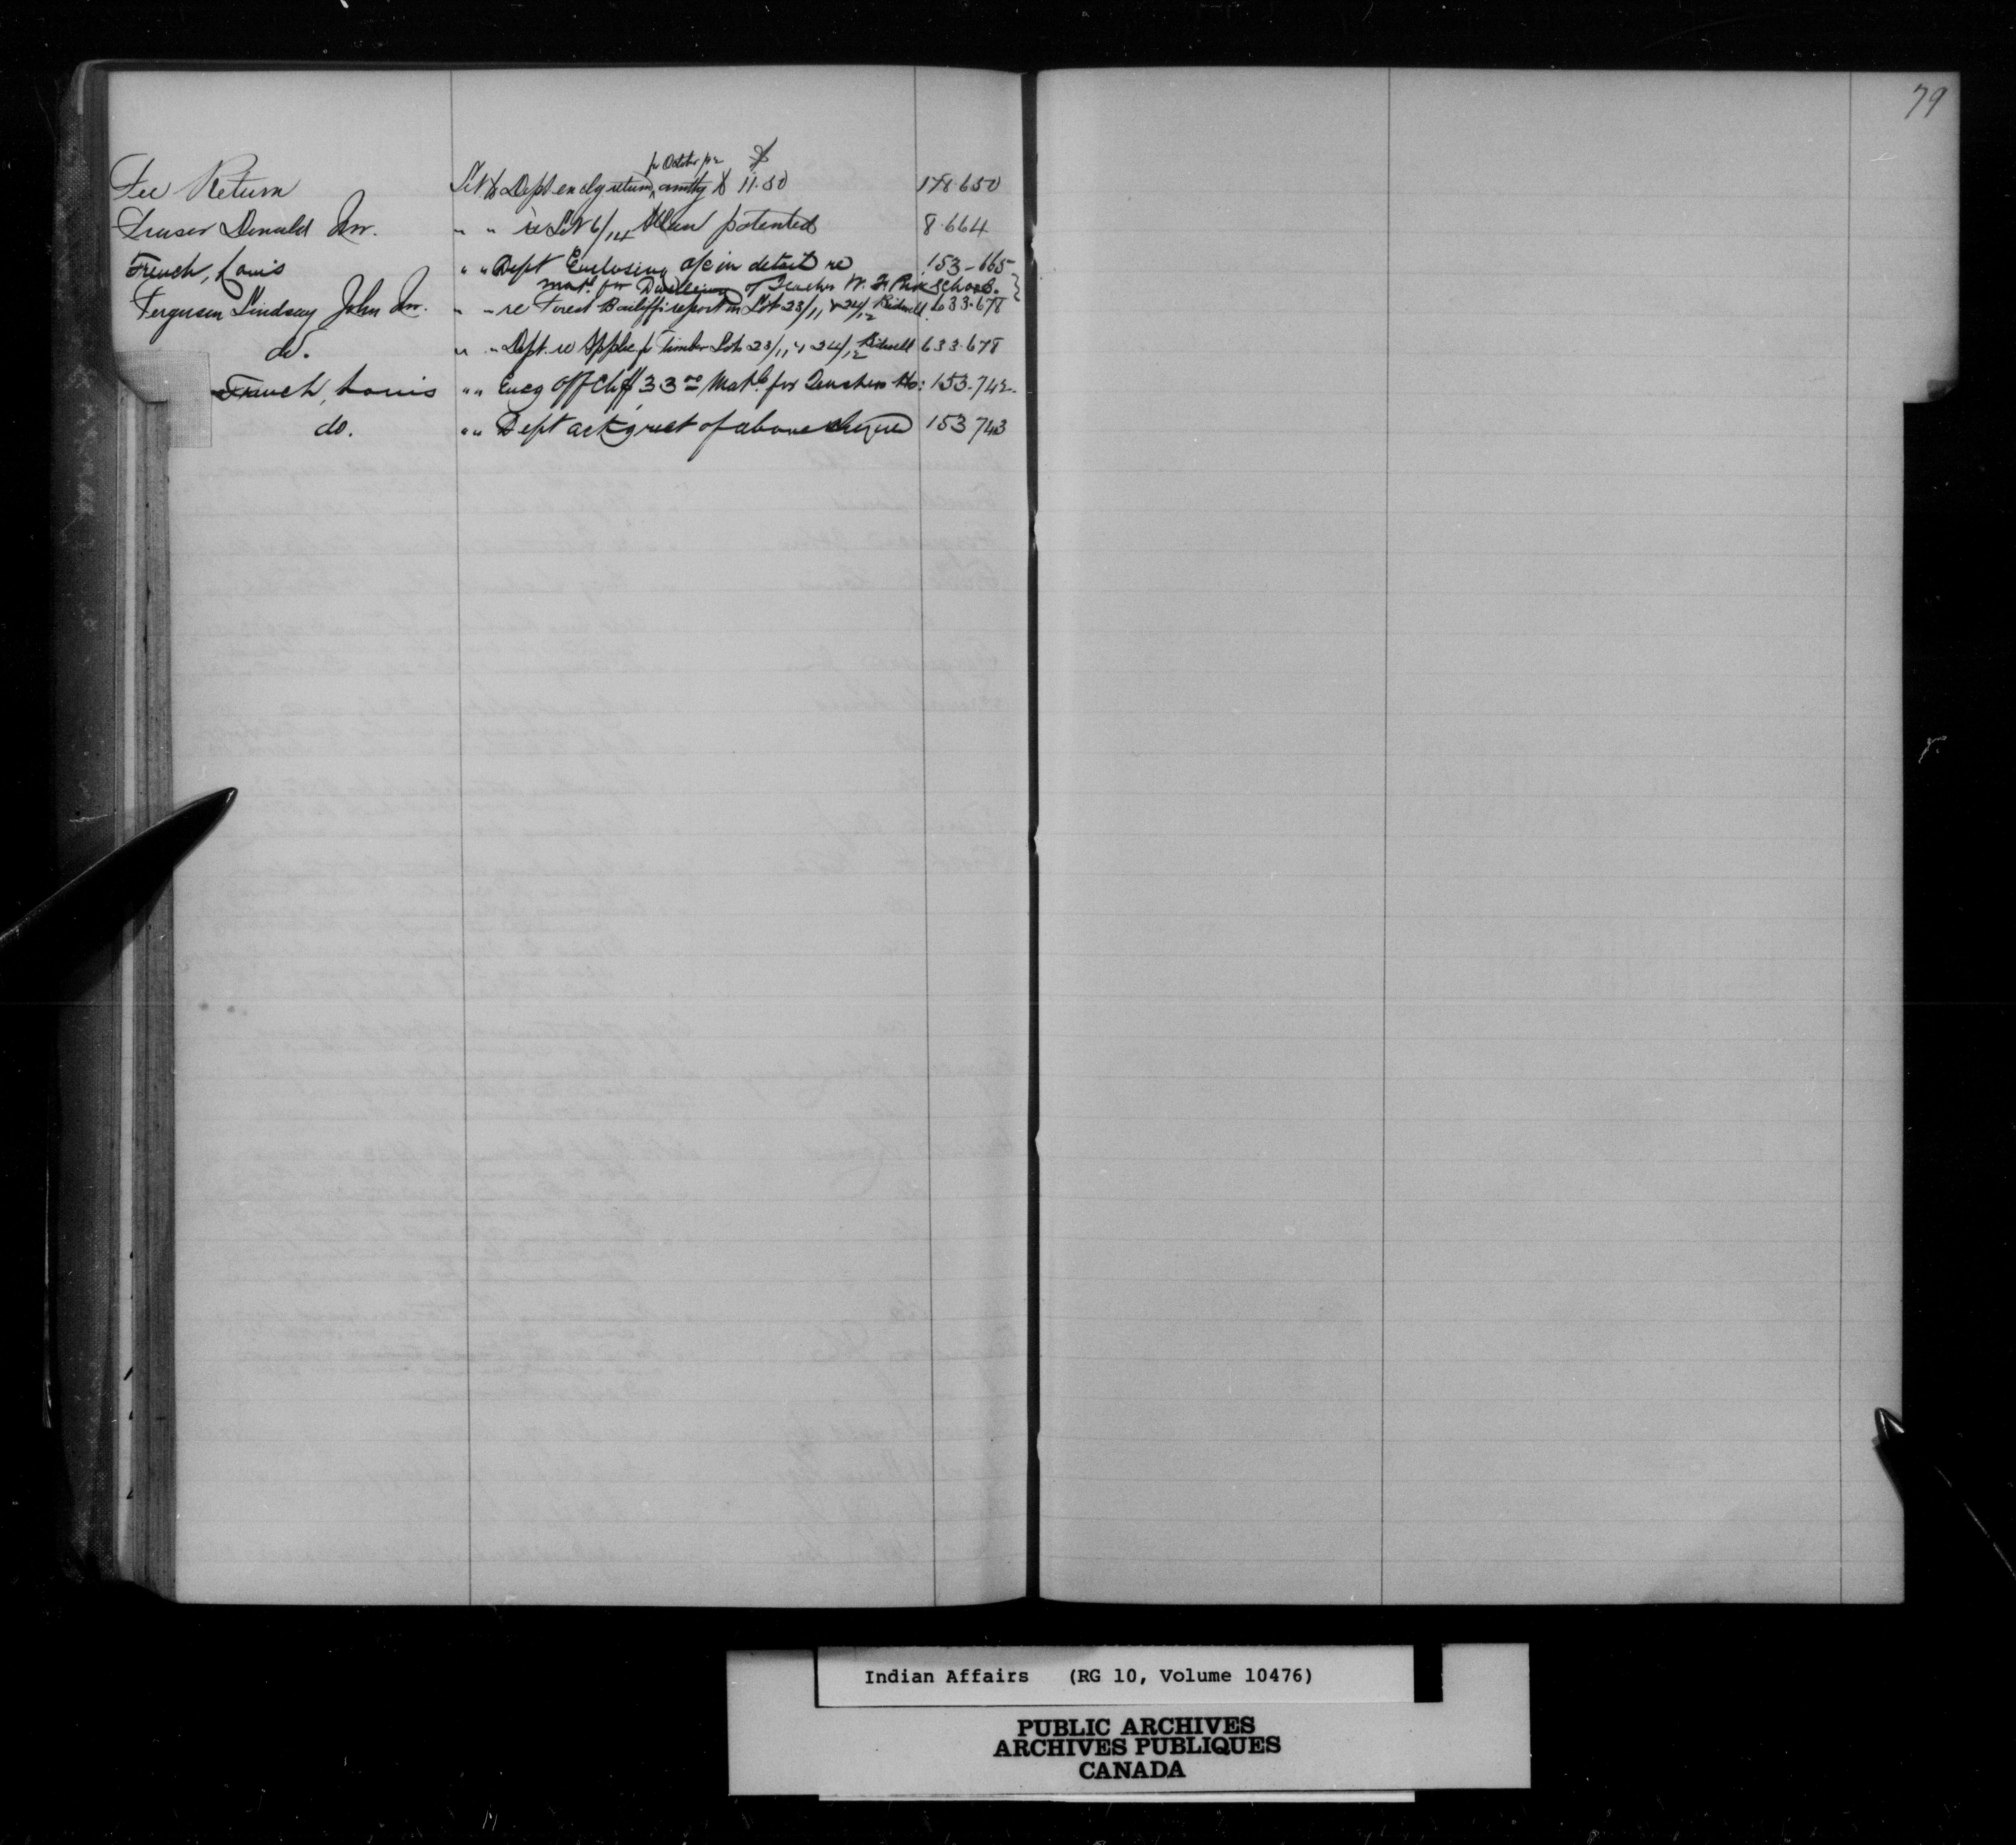 79
for October /92
Fee Return Let to Dept enclg return amtg to $11.50 178.650
Fraser Donald Jnr. " " re Lot 6/14 Allan patented 8.664
French, Louis " " Dept Enclosing a/c in detail re 153-665
mat. for Dwelling of Teacher W. F. School.
Ferguson Lindsay John Jnr. " " re Forest Bailiff report on Lots 23/11 & 24/12 Bidwell 633.678
do. " " Dept. re Applic for Timber Lots 23/11 & 24/12 Bidwell 633.678
French, Louis " " Encg Off Chq 33 Matl for Teachers Ho: 153-742
do. " " Dept ackg rect of above cheque 153743
Indian Affairs (RG 10, Volume 10476)
PUBLIC ARCHIVES
ARCHIVES PUBLIQUES
CANADA